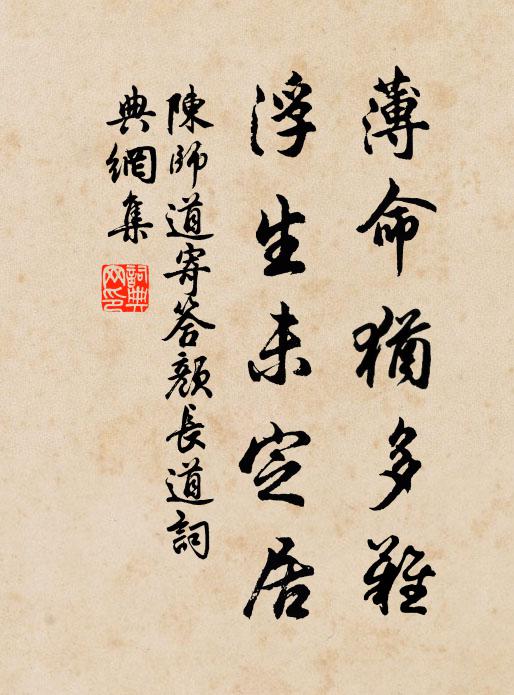 薄命猶多難
浮生未定居
陳師道寄答顏長道詞
典網集
詞典网印